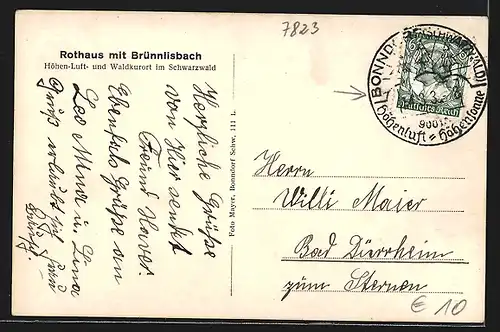 7823
Rothaus mit Brünnlisbach
Höhen-Luft- und Waldkurort im Schwarzwald
Herzliche Grüße
von Hier sendet
Freund Xaver.
Ebenfals Grüße an
Leo Mina u. Lina
Gruß
Foto Mayer, Bonndorf Schw. 111 L.
Herrn
Willi Maier
Bad Dürrheim
zum Sternen
(BONNDORF (SCHWARZWALD)
Höhenluft = Höhensonne
900
€ 10